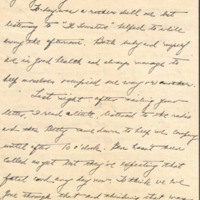 Today was a rather dull one but
listening to "H.
helped to while
away the afternoon. Both baby and myself
are in good health and always manage to
keep ourselves occupied one way or another.
Last night after writing your
letter, I read a book, listened to the radio
and then Betty came down to keep me company
until after 10 o'clock. Ben hasn't been
called as yet but they're expecting that
fatal card any day now. I think we've
gone through that and thinking that was